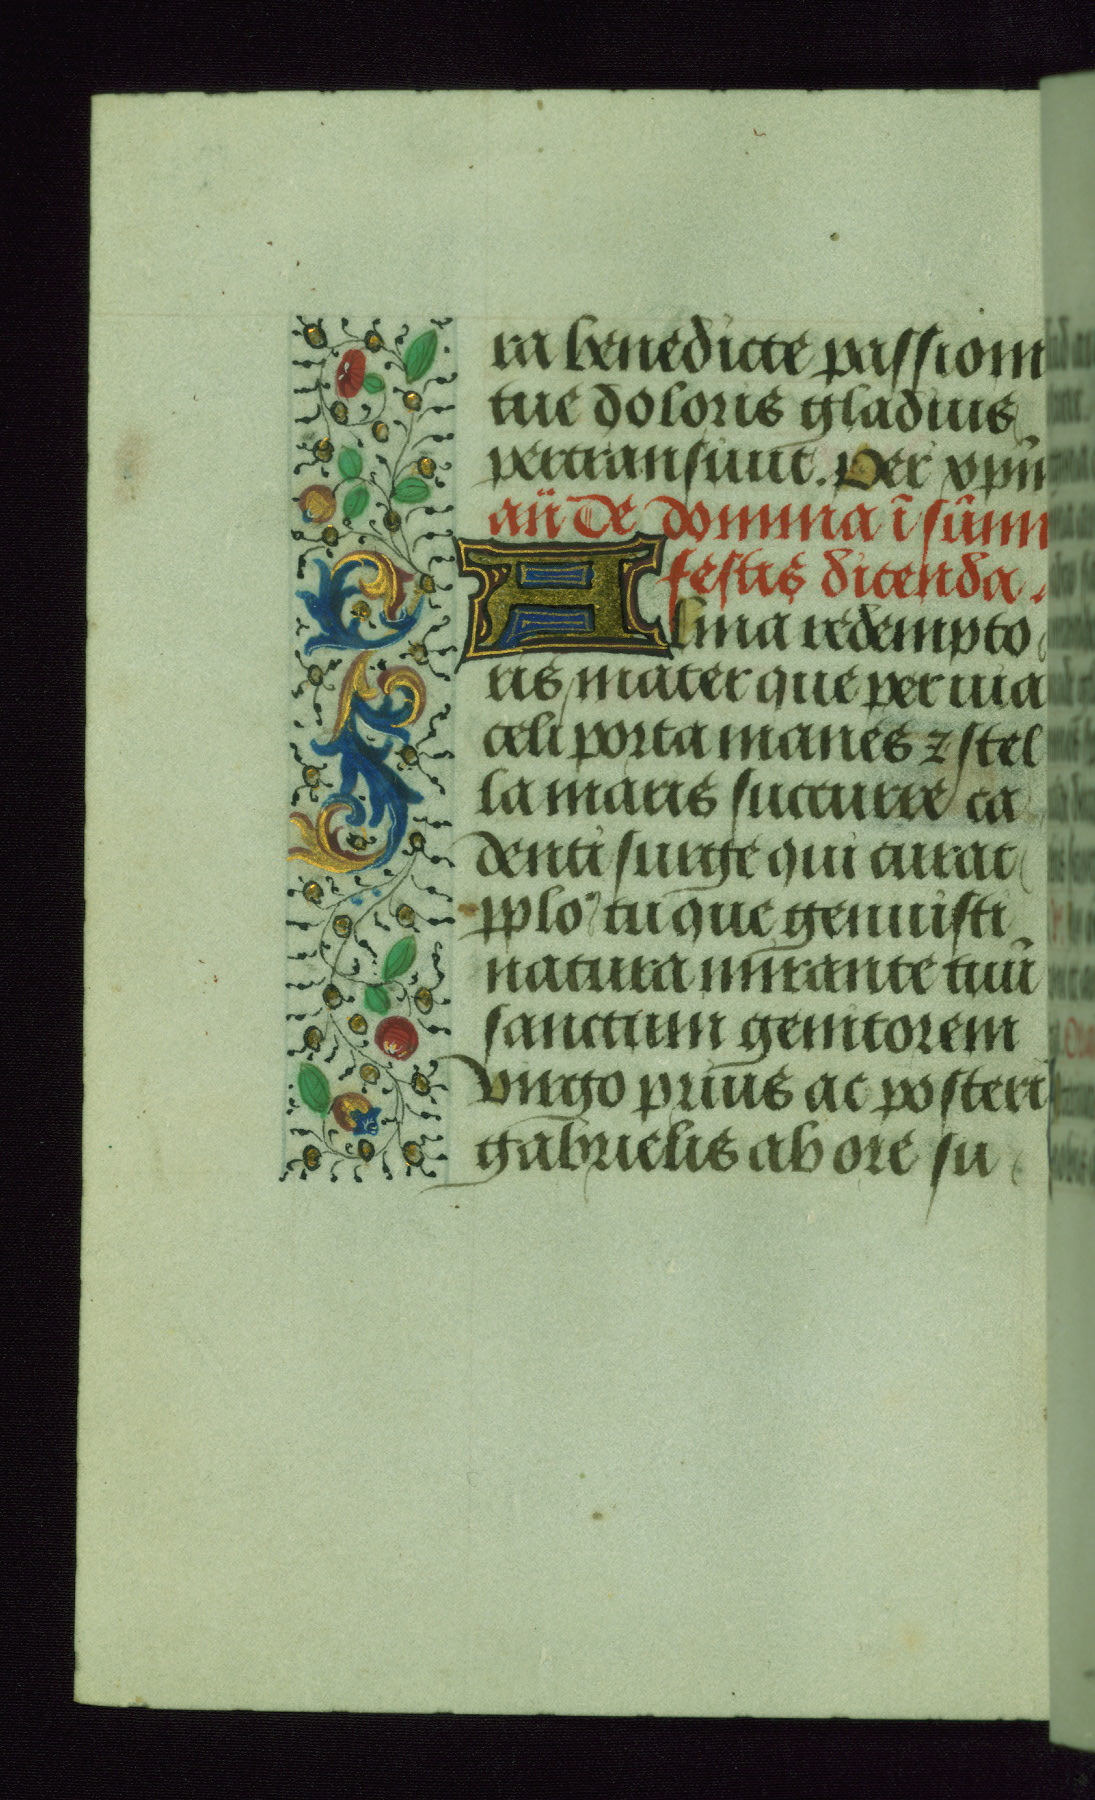 ra benedicte passioni
tue doloris gladius
pertransiuit. Per xp̄m
an̄ De domina ī sūmi
festis dicenda.
Alma redempto
ris mater que peruia
celi porta manes ⁊ stel
la maris succurre ca
denti surge qui curat
pplo tu que genuisti
natura mirante tuū
sanctum genitorem
virgo prius ac posteri
gabrielis ab ore su